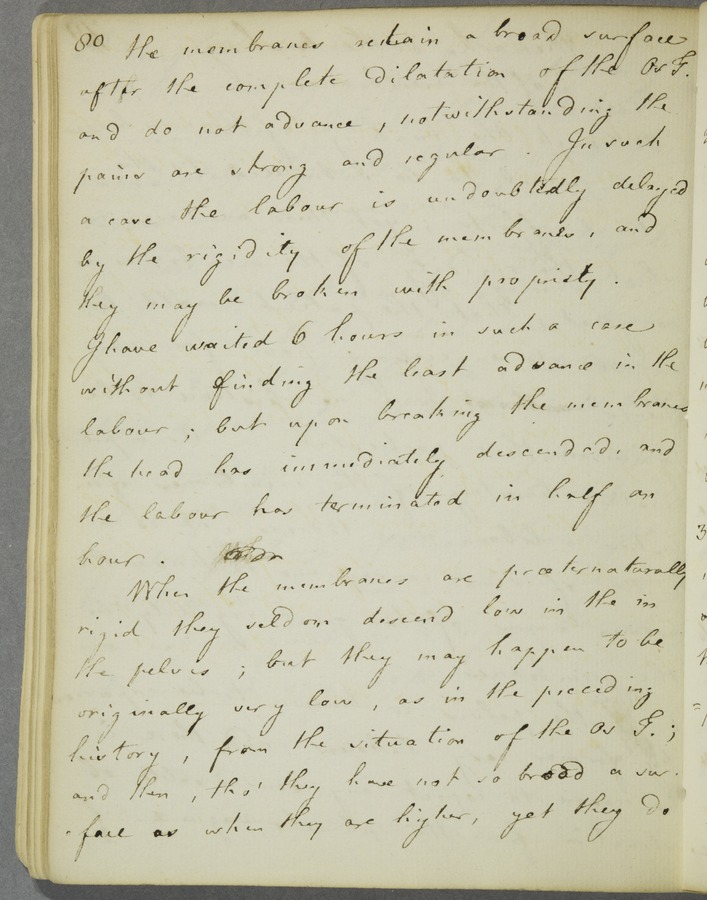 80 the membranes retain a broad surface
after the complete dilatation of the Os T.
and do not advance, notwithstanding the
pains are strong and regular. In such
a case the labour is undoubtedly delayed
by the rigidity of the membranes, and
they may be broken with propriety.
I have waited 6 hours in such a case
without finding the least advance in the
labour; but upon breaking the membranes
the head has immediately descended, and
the labour has terminated in half an
hour.
When the membranes are præternaturally
rigid they seldom descend low in the in
the pelvis; but they may happen to be
originally very low, as in the preceding
history, from the situation of the Os T.;
and then, tho' they have not so broad a sur-
-face as when they are higher, yet they do